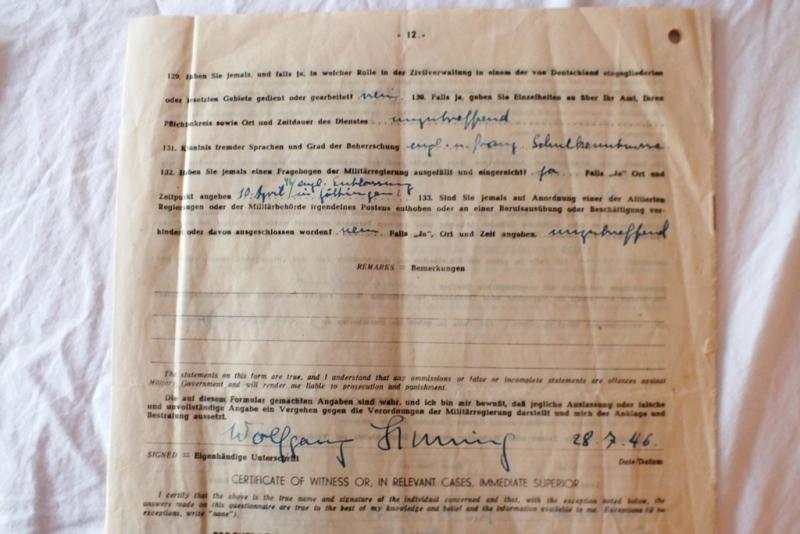 - 12.-
129. Haben Sie jemals, und falls ja, in welcher Rolle in der Zivilverwaltung in einem der von Deutschland eingegliederten
oder besetzten Gebiete gedient oder gearbeitet? nein. 130. Falls ja, geben Sie Einzelheiten an über Ihr Amt, Ihren
Pflichtenkreis sowie Ort und Zeitdauer des Dienstes . . . unzutreffend
131. Kenntnis fremder Sprachen und Grad der Beherrschung engl. u. franz. Schulkenntnisse
132. Haben Sie jemals einen Fragebogen der Militärregierung ausgefüllt und eingereicht? ja . . Falls „Ja" Ort und
engl. Entlassung
Zeitpunkt angeben 10. April in Göttingen. 133. Sind Sie jemals auf Anordnung einer der Alliierten
Regierungen oder der Militärbehörde irgendeines Postens enthoben oder an einer Berufsausübung oder Beschäftigung ver-
hindert oder davon ausgeschlossen worden? nein. Falls „Ja", Ort und Zeit angeben. unzutreffend
REMARKS = Bemerkungen
The statements on this form are true, and I understand that any ommissions or false or incomplete statements are offences against
Military Government and will render me liable to prosecution and punishment.
Die auf diesem Formular gemachten Angaben sind wahr, und ich bin mir bewußt, daß jegliche Auslassung oder falsche
und unvollständige Angabe ein Vergehen gegen die Verordnungen der Militärregierung darstellt und mich der Anklage und
Bestrafung aussetzt.
Wolfgang 28.7.46.
SIGNED = Eigenhändige Unterschrift Date/Datum
CERTIFICATE OF WITNESS OR, IN RELEVANT CASES, IMMEDIATE SUPERIOR
I certify that the above is the true name and signature of the individual concerned and that, with the exception noted below, the
answers made on this questionnaire are true to the best of my knowledge and belief and the information available to me. Exceptions (if no
exceptions, write "none").